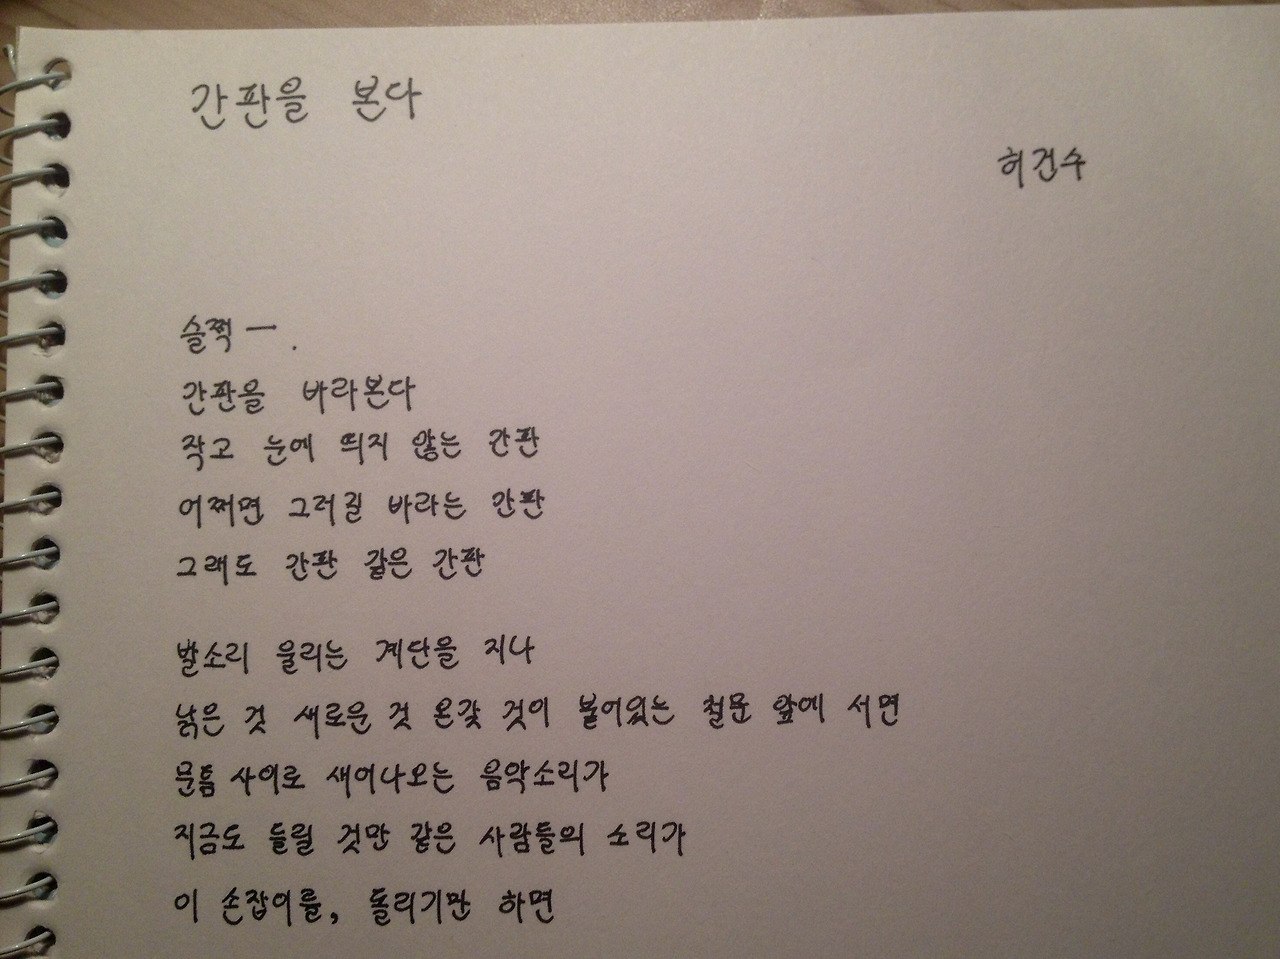 간판을 본다
허건수
슬쩍 —.
간판을 바라본다
작고 눈에 띄지 않는 간판
어쩌면 그러길 바라는 간판
그래도 간판 같은 간판
발소리 울리는 계단을 지나
낡은 것 새로운 것 온갖 것이 붙어있는 철문 앞에 서면
문틈 사이로 새어나오는 음악소리가
지금도 들릴 것만 같은 사람들의 소리가
이 손잡이를, 돌리기만 하면